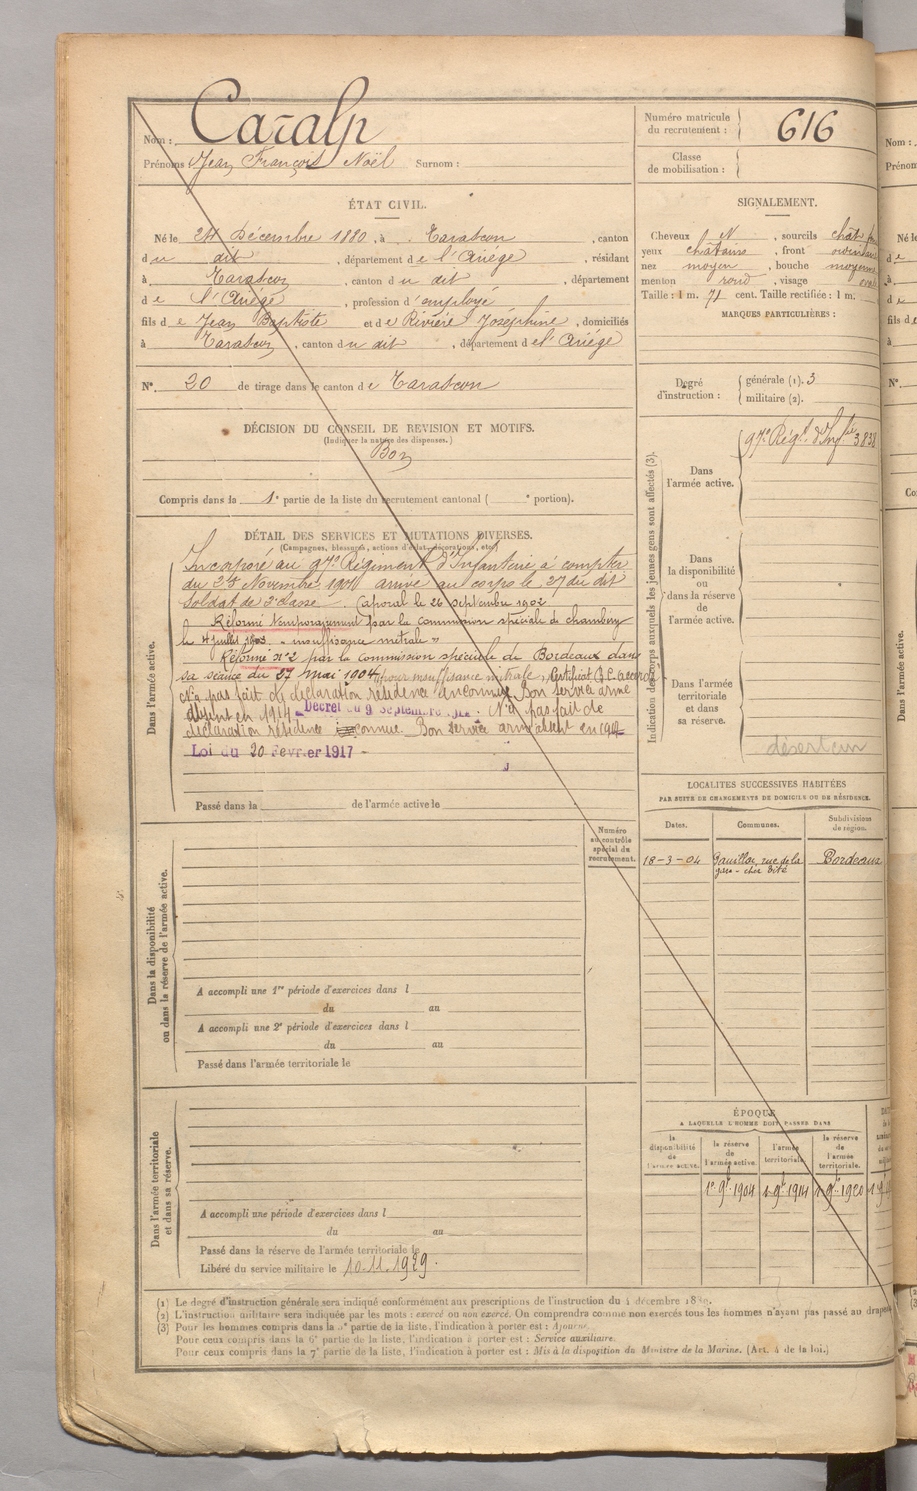 Nom : Caralp
Prénoms Jean François Noël Surnom :
Numéro matricule
du recrutement : 616
Classe
de mobilisation :
ÉTAT CIVIL.
Né le 24 Décembre 1880, à Tarascon, canton
du dit, département de l'Ariége, résidant
à Tarascon, canton du dit, département
de l'Ariége, profession d'employé
fils de Jean Baptiste et de Rivière Joséphine, domiciliés
à Tarascon, canton du dit, département de l'Ariége
N° 20 de tirage dans le canton de Tarascon
SIGNALEMENT.
Cheveux N, sourcils chât
yeux châtains, front
nez moyen, bouche moyenne
menton rond, visage ovale
Taille : 1 m. 71 cent. Taille rectifiée : 1 m.
MARQUES PARTICULIÈRES :
Degré
d'instruction :
générale (1). 3
militaire (2).
DÉCISION DU CONSEIL DE REVISION ET MOTIFS.
(Indiquer la nature des dispenses.)
Bon
Compris dans la 1e partie de la liste du recrutement cantonal ( e portion).
DÉTAIL DES SERVICES ET MUTATIONS DIVERSES.
(Campagnes, blessures, actions d'éclat, décorations, etc.)
Dans l'armée active.
Incorporé au 97e Régiment d'Infanterie à compter
du Novembre 1901 arrivé au corps le 27 du dit
Soldat de 2e classe. Caporal le 26 septembre 1902
Réformé temporairement par la commission spéciale de chambéry
le 4 juillet 1903. "insuffisance mitrale"
Réformé n°2 par la commission spéciale de Bordeaux dans
sa séance du 27 mai 1904 pour insuffisance mitrale, Certificat B.C. accordé
N'a pas fait de déclaration résidence inconnue Bon service armé
absent en 1914. Décret du 9 Septembre 1914. N'a pas fait de
déclaration résidence inconnue. Bon service armé absent en 1917
Loi du 20 Février 1917 -
Passé dans la de l'armée active le
Indication des corps auxquels les jeunes gens sont affectés (3).
Dans
l'armée active.
97e Régt. d'Infie 3838
Dans
la disponibilité
ou
dans la réserve
de
l'armée active.
Dans l'armée
territoriale
et dans
sa réserve.
déserteur
LOCALITES SUCCESSIVES HABITÉES
PAR SUITE DE CHANGEMENTS DE DOMICILE OU DE RÉSIDENCE.
Dates. Communes. Subdivisions
de région.
18-3-04 rue de la Bordeaux
gare - chez
Numéro
au contrôle
spécial du
recrutement.
Dans la disponibilité
ou dans la réserve de l'armée active.
A accompli une 1re période d'exercices dans l
du au
A accompli une 2e période d'exercices dans l
du au
Passé dans l'armée territoriale le
ÉPOQUE
A LAQUELLE L'HOMME DOIT PASSER DANS
la
disponibilité
de
l'armée active.
la réserve
de
l'armée active.
l'armée
territoriale.
la réserve
de
l'armée
territoriale.
1er 9bre 1904 1er 9bre 1914 1er 9bre 1920
Dans l'armée territoriale
et dans sa réserve.
A accompli une période d'exercices dans l
du au
Passé dans la réserve de l'armée territoriale le
Libéré du service militaire le 10.11.1929.
(1) Le degré d'instruction générale sera indiqué conformément aux prescriptions de l'instruction du 4 décembre
(2) L'instruction militaire sera indiquée par les mots : exercé ou non exercé. On comprendra comme non exercés tous les hommes n'ayant pas passé au
(3) Pour les hommes compris dans la partie de la liste, l'indication à porter est : Ajourné.
Pour ceux compris dans la 6e partie de la liste, l'indication à porter est : Service auxiliaire.
Pour ceux compris dans la 7e partie de la liste, l'indication à porter est : Mis à la disposition du Ministre de la Marine. (Art. 4 de la loi.)